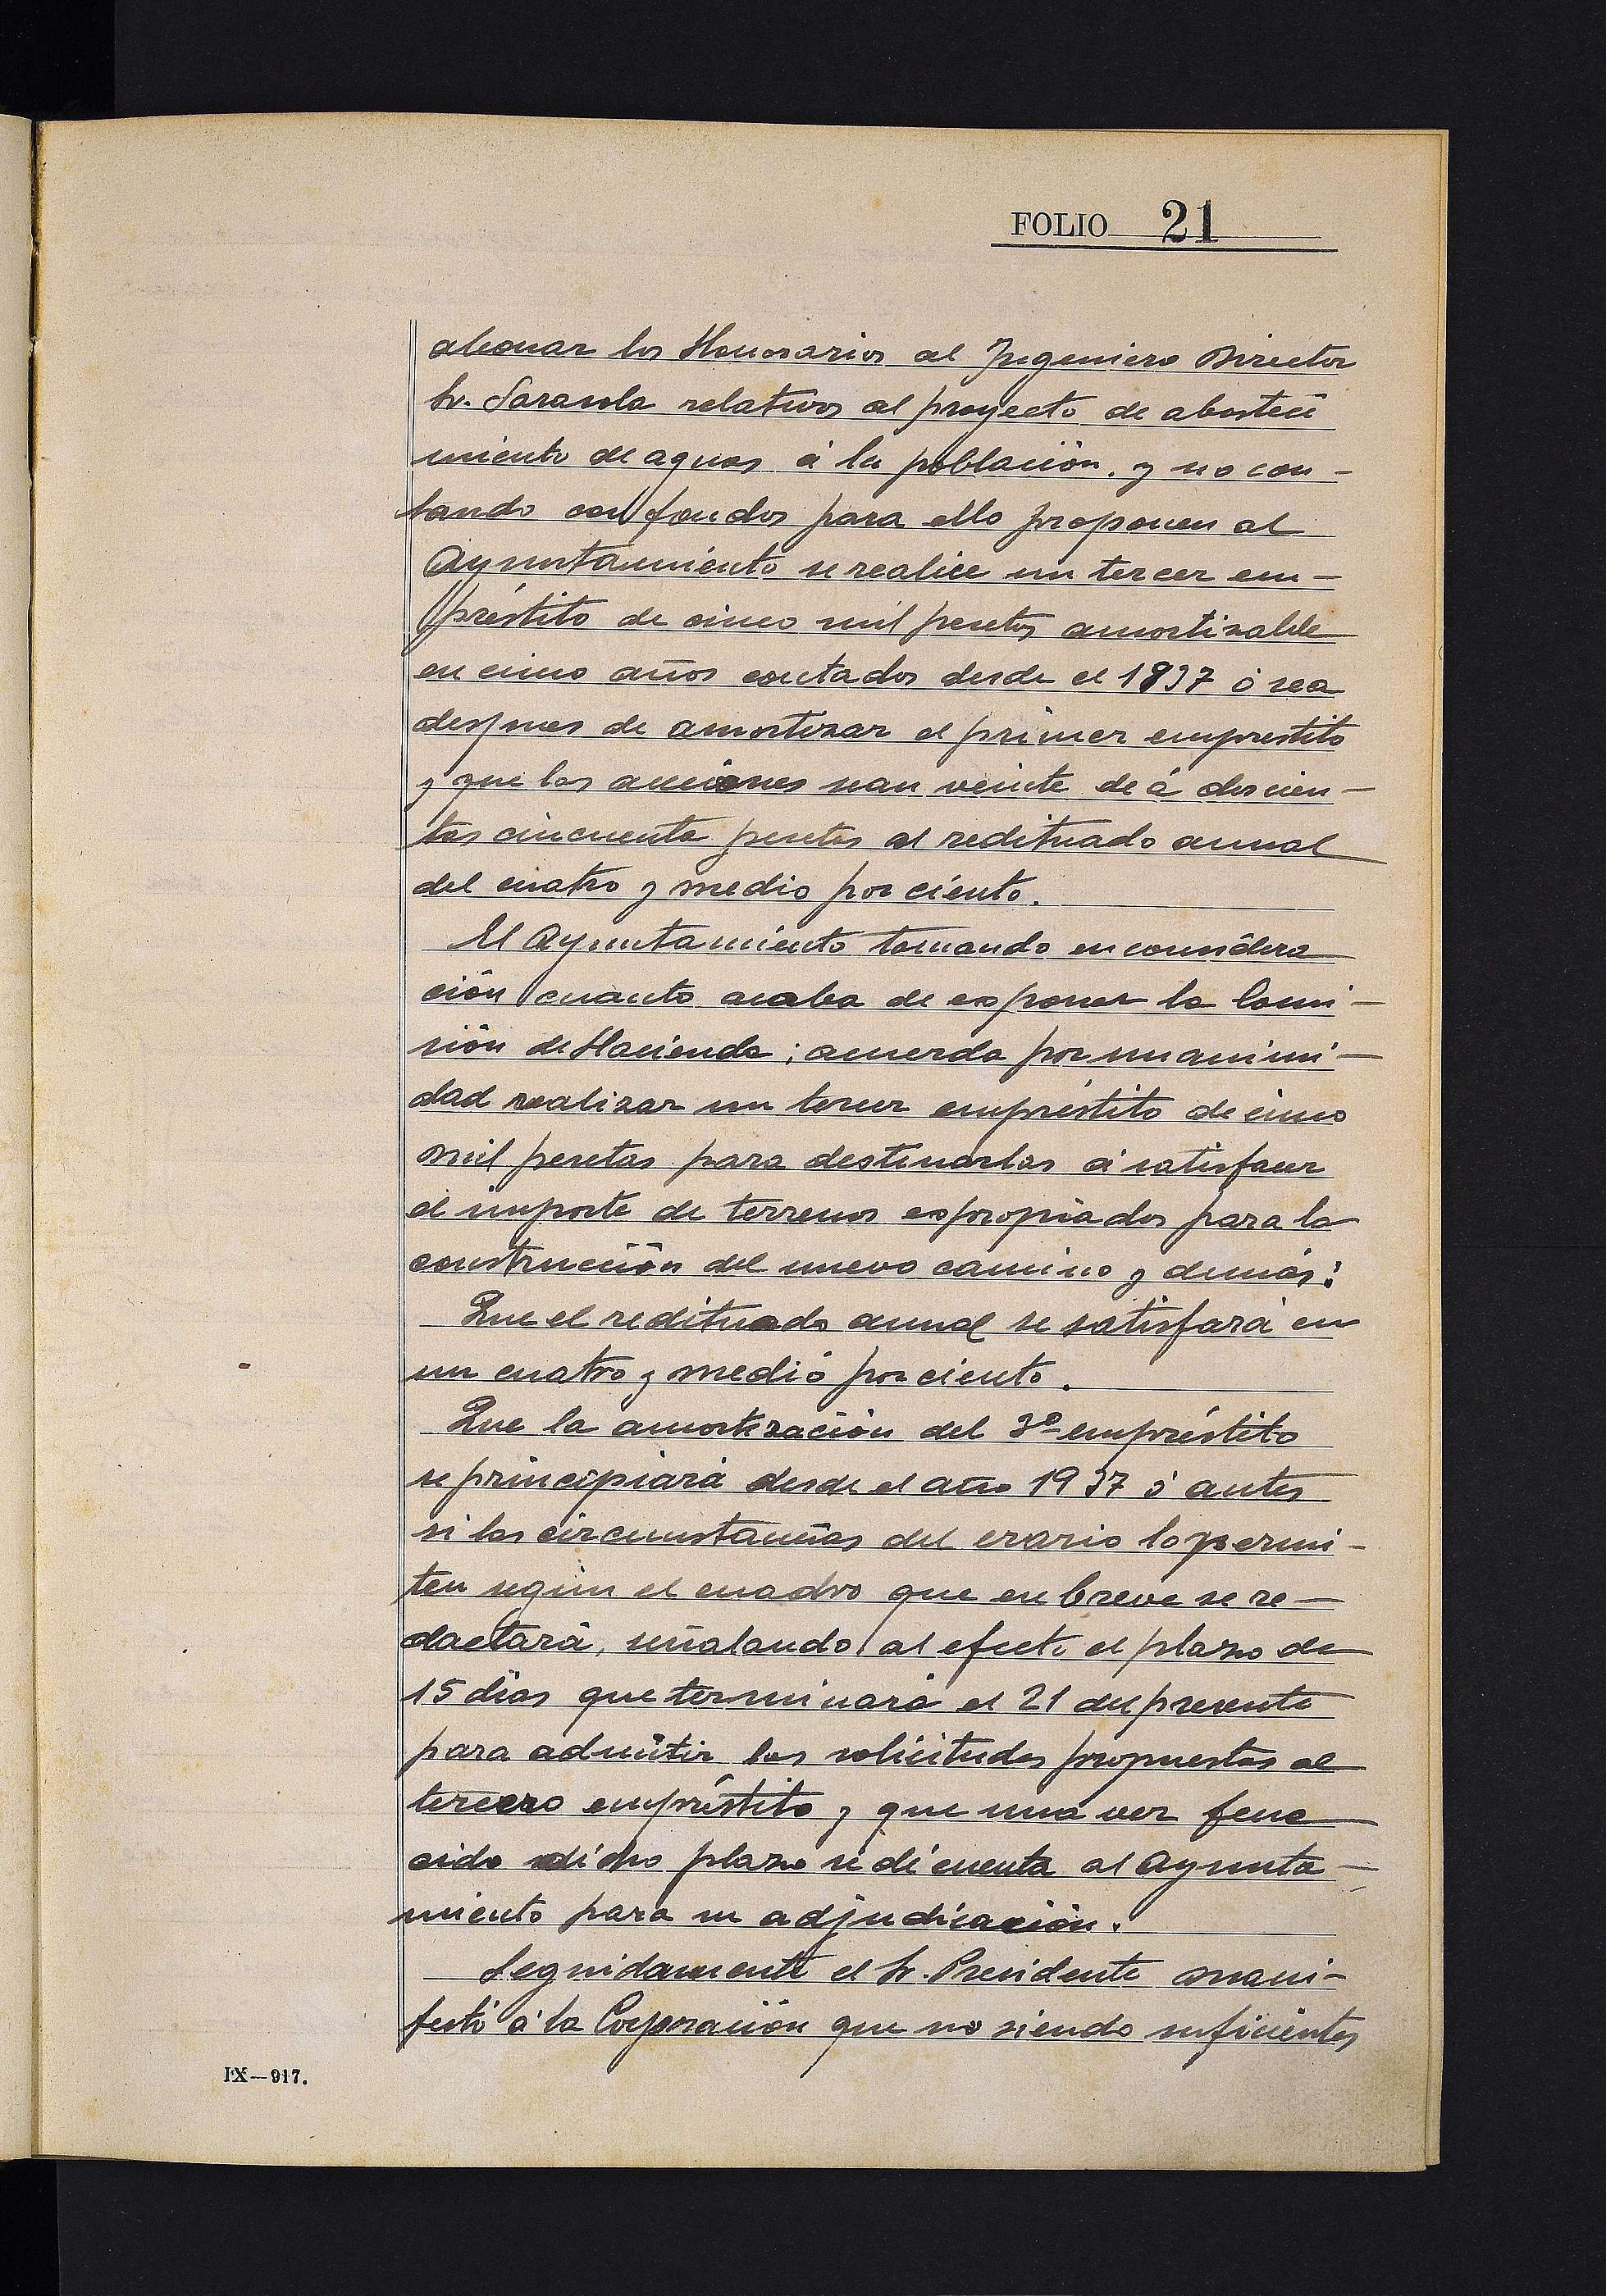 FOLIO 21
abonar los Honorarios al Ingeniero Director
Sr. Sarasola relativos al proyecto de abasteci
miento de aguas á la población. y no con-
tando con fondos para ello proponen al
Ayuntamiento se realice un tercer em-
préstito de cinco mil pesetas amortizable
en cinco años contados desde el 1937 ó sea
despues de amortizar el primer emprestito
y que las acciones sean veinte de á doscien-
tas cincuenta pesetas al redituado annual
del cuatro y medio por ciento.
El Ayuntamiento tomando en considera
ción cuanto acaba de exponer la Comi-
sión de Hacienda; acuerda por unanimi-
dad realizar un tercer empréstito de cinco
mil pesetas para destinarlas á satisfacer
el importe de terrenos expropiados para la
construcción del nuevo camino y demás:
Que el redituado annual se satisfará en
un cuatro y medio por ciento.
Que la amortización del 3º empréstito
se principiará desde el año 1937 ó antes
si las circunstancias del erario lo permi-
ten según el cuadro que en breve se re-
dactará, señalando al efecto el plazo de
15 dias que terminará el 21 del presente
para admitir las solicitudes propuestas al
tercero empréstito y que una vez fene
cido dicho plazo se dé cuenta al Ayunta-
miento para su adjudicación.
Seguidamente el Sr. Presidente mani-
festó á la Corporación que no siendo suficientes
IX-917.